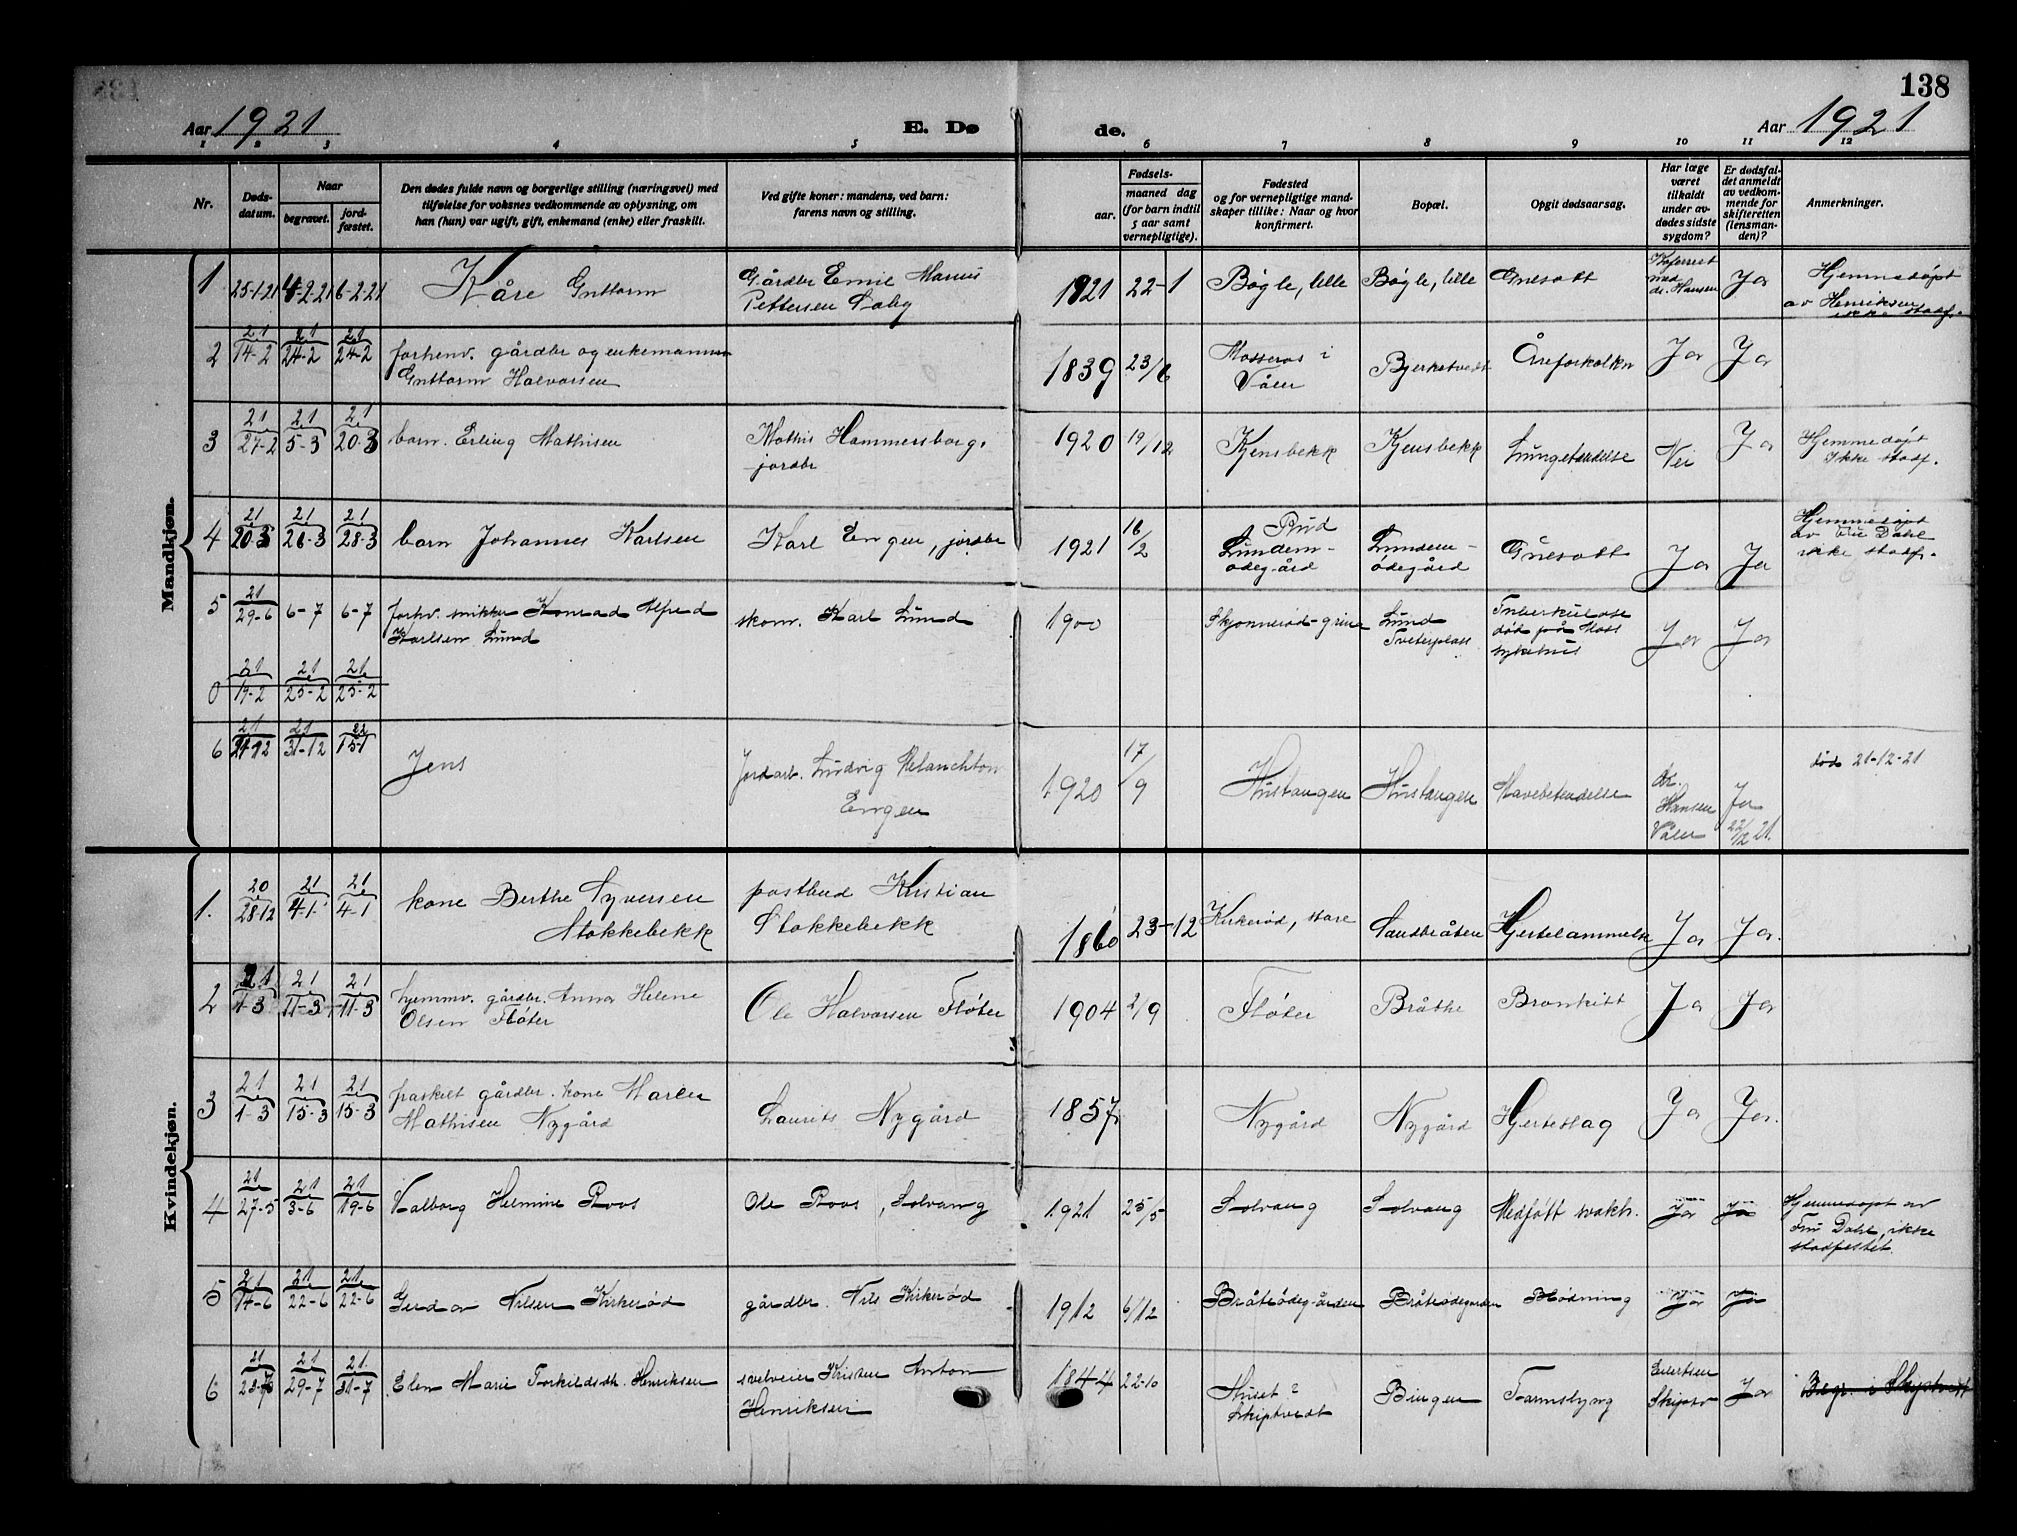 138
Aar 1921 E. Døde. Aar 1921
1 2 3 4 5 6 7 8 9 10 11 12
Nr.
Døds-
datum.
Naar
begravet.
jord-
fæstet.
Den dødes fulde navn og borgerlige stilling (næringsvei) med
tilføielse for voksnes vedkommende av oplysning, om
han (hun) var ugift, gift, enkemand (enke) eller fraskilt.
Ved gifte koner: mandens, ved barn:
farens navn og stilling.
Fødsels-
aar.
maaned dag
(for barn indtil
5 aar samt
vernepligtige).
Fødested
og for vernepligtige mand-
skaper tillike: Naar og hvor
konfirmert.
Bopæl.
Opgit dødsaarsag.
Har læge
været
tilkaldt
under av-
dødes sidste
sygdom?
Er dødsfal-
det anmeldt
av vedkom-
mende for
skifteretten
(lensman-
den)?
Anmerkninger.
Mandkjøn.
1 25-1-21 4-2-21 6-2-21 Kåre Guttorm
Gårdbr Emil Marius
Pettersen Daleg
1921 22-1 Bøgle, lille Bøgle, lille Gulsott
Konferert
med
dr. Hansen
Ja
Hjemmedøpt
av Henriksen
ikke stadf.
2 21 14-2 21 24-2 21 24-2
forhenv. gårdbr og enkemann
Guttorm Halvorsen
1839 23/6
Mosseros i
Våler
Bjerketvedt Åreforkalkn Ja Ja
3 21 27-2 21 5-3 21 20-3 barn. Erling Mathisen
Mathis Hammersborg,
jordbr
1920 19/12 Kjensbekk Kjensbekk Lungebetendelse Nei Ja
Hjemmedøpt
Ikke stadf.
4 21 20-3 21 26-3 21 28-3 barn Johannes Karlsen Karl Engen, jordbr
1921 16/2
Rud
Lundem-
ødegård
Lundem-
ødegård
Gulsott Ja Ja
Hjemmedøpt
av Fru Dahl
ikke stadf.
5 21 29-6 6-7 6-7
forhv. snikker Konrad Alfred
Karlsen Lund
skom. Karl Lund 1900 Skjonnerød-grina
Lund
Tveterplass
Tuberkulose
død på Moss
sykehus
Ja Ja
0 21 19-2 21 25-2 21 25-2
6 21 21-12 21 31-12 22 15-1 Jens
Jordarb. Ludvig Melanchton
Engen
1920 17/9 Hustangen Hustangen Mavebetendelse
dr.
Hansen
Våler
Ja
22/12 21.
død 21-12-21
Kvindekjøn.
1. 20 28-12 21 4-1 21 4-1
kone Berthe Syversen
Stokkebekk
postbud Kristian
Stokkebekk
1860 23-12 Kirkerød, store Sandbråten Hjertelammelse Ja Ja.
2 21 1-3 21 11-3 21 11-3
hjemmv. gårdbr. Anna Helene
Olsen Fløter
Ole Halvorsen Fløter 1904 2/9 Fløter Bråthe Bronkitt Ja Ja
3 21 1-3 21 15-3 21 15-3
fraskilt gårdbr. kone Maren
Mathisen Nygård
Laurits Nygård 1857 Nygård Nygård Hjerteslag Ja Ja.
4 21 27-5 21 3-6 21 19-6 Valborg Helmine Roos Ole Roos, Solvang
1921 25/5 Solvang Solvang Medfött svakh. Ja Ja
Hjemmedøpt av
Fru Dahl, ikke
stadfestet.
5 21 14-6 21 22-6 21 22-6 Gerda Nilsen Kirkerød gårdbr. Nils Kirkerød
1912 6/12 Bråtrødeg-ården Bråtrødegården Blødning Ja Ja
6 21 29-7 21 31-7 Elen Marie Torkildsdtr. Henriksen
selveier Kristen Anton
Henriksen
1844 22-10
Huset i
Skiptvedt
Bingen Tarmslyng
Ja
Begr. i Skiptvedt